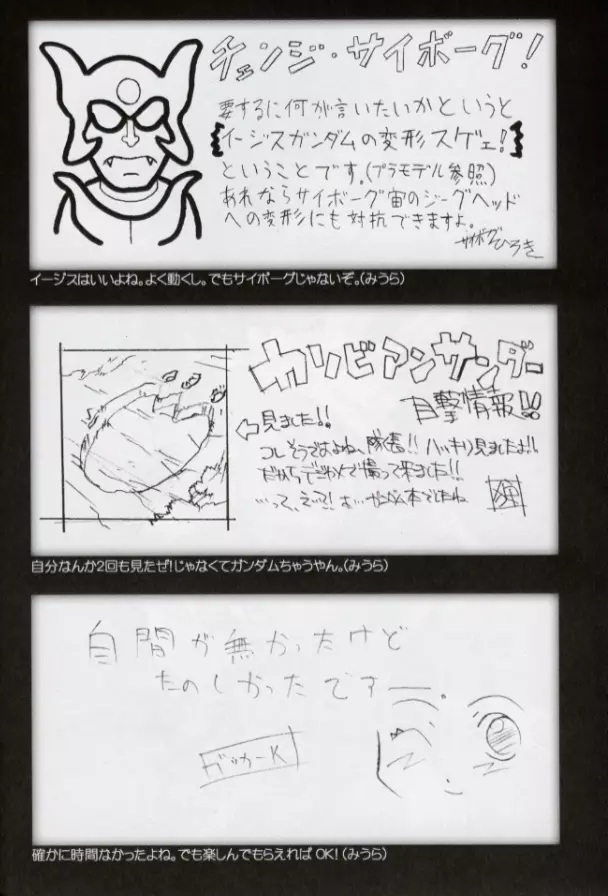 チェンジ・サイボーグ!
要するに何が言いたいかというと
イージスガンダムの変形スゲェ!
ということです。(プラモデル参照)
あれならサイボーグ宙のジーグヘッド
への変形にも対抗できますよ。
サイボーグひろき
イージスはいいよね。よく動くし。でもサイボーグじゃないぞ。(みうら)
カリビアンサンダー
目撃情報!!
見ました!!
コレそうですよね、隊長!! ハッキリ見ましたよ!!
撮って来ました!!
自分なんか2回も見たぜ!じゃなくてガンダムちゃうやん。(みうら)
自間が無かったけど
たのしかったですー。
確かに時間なかったよね。でも楽しんでもらえればOK!(みうら)